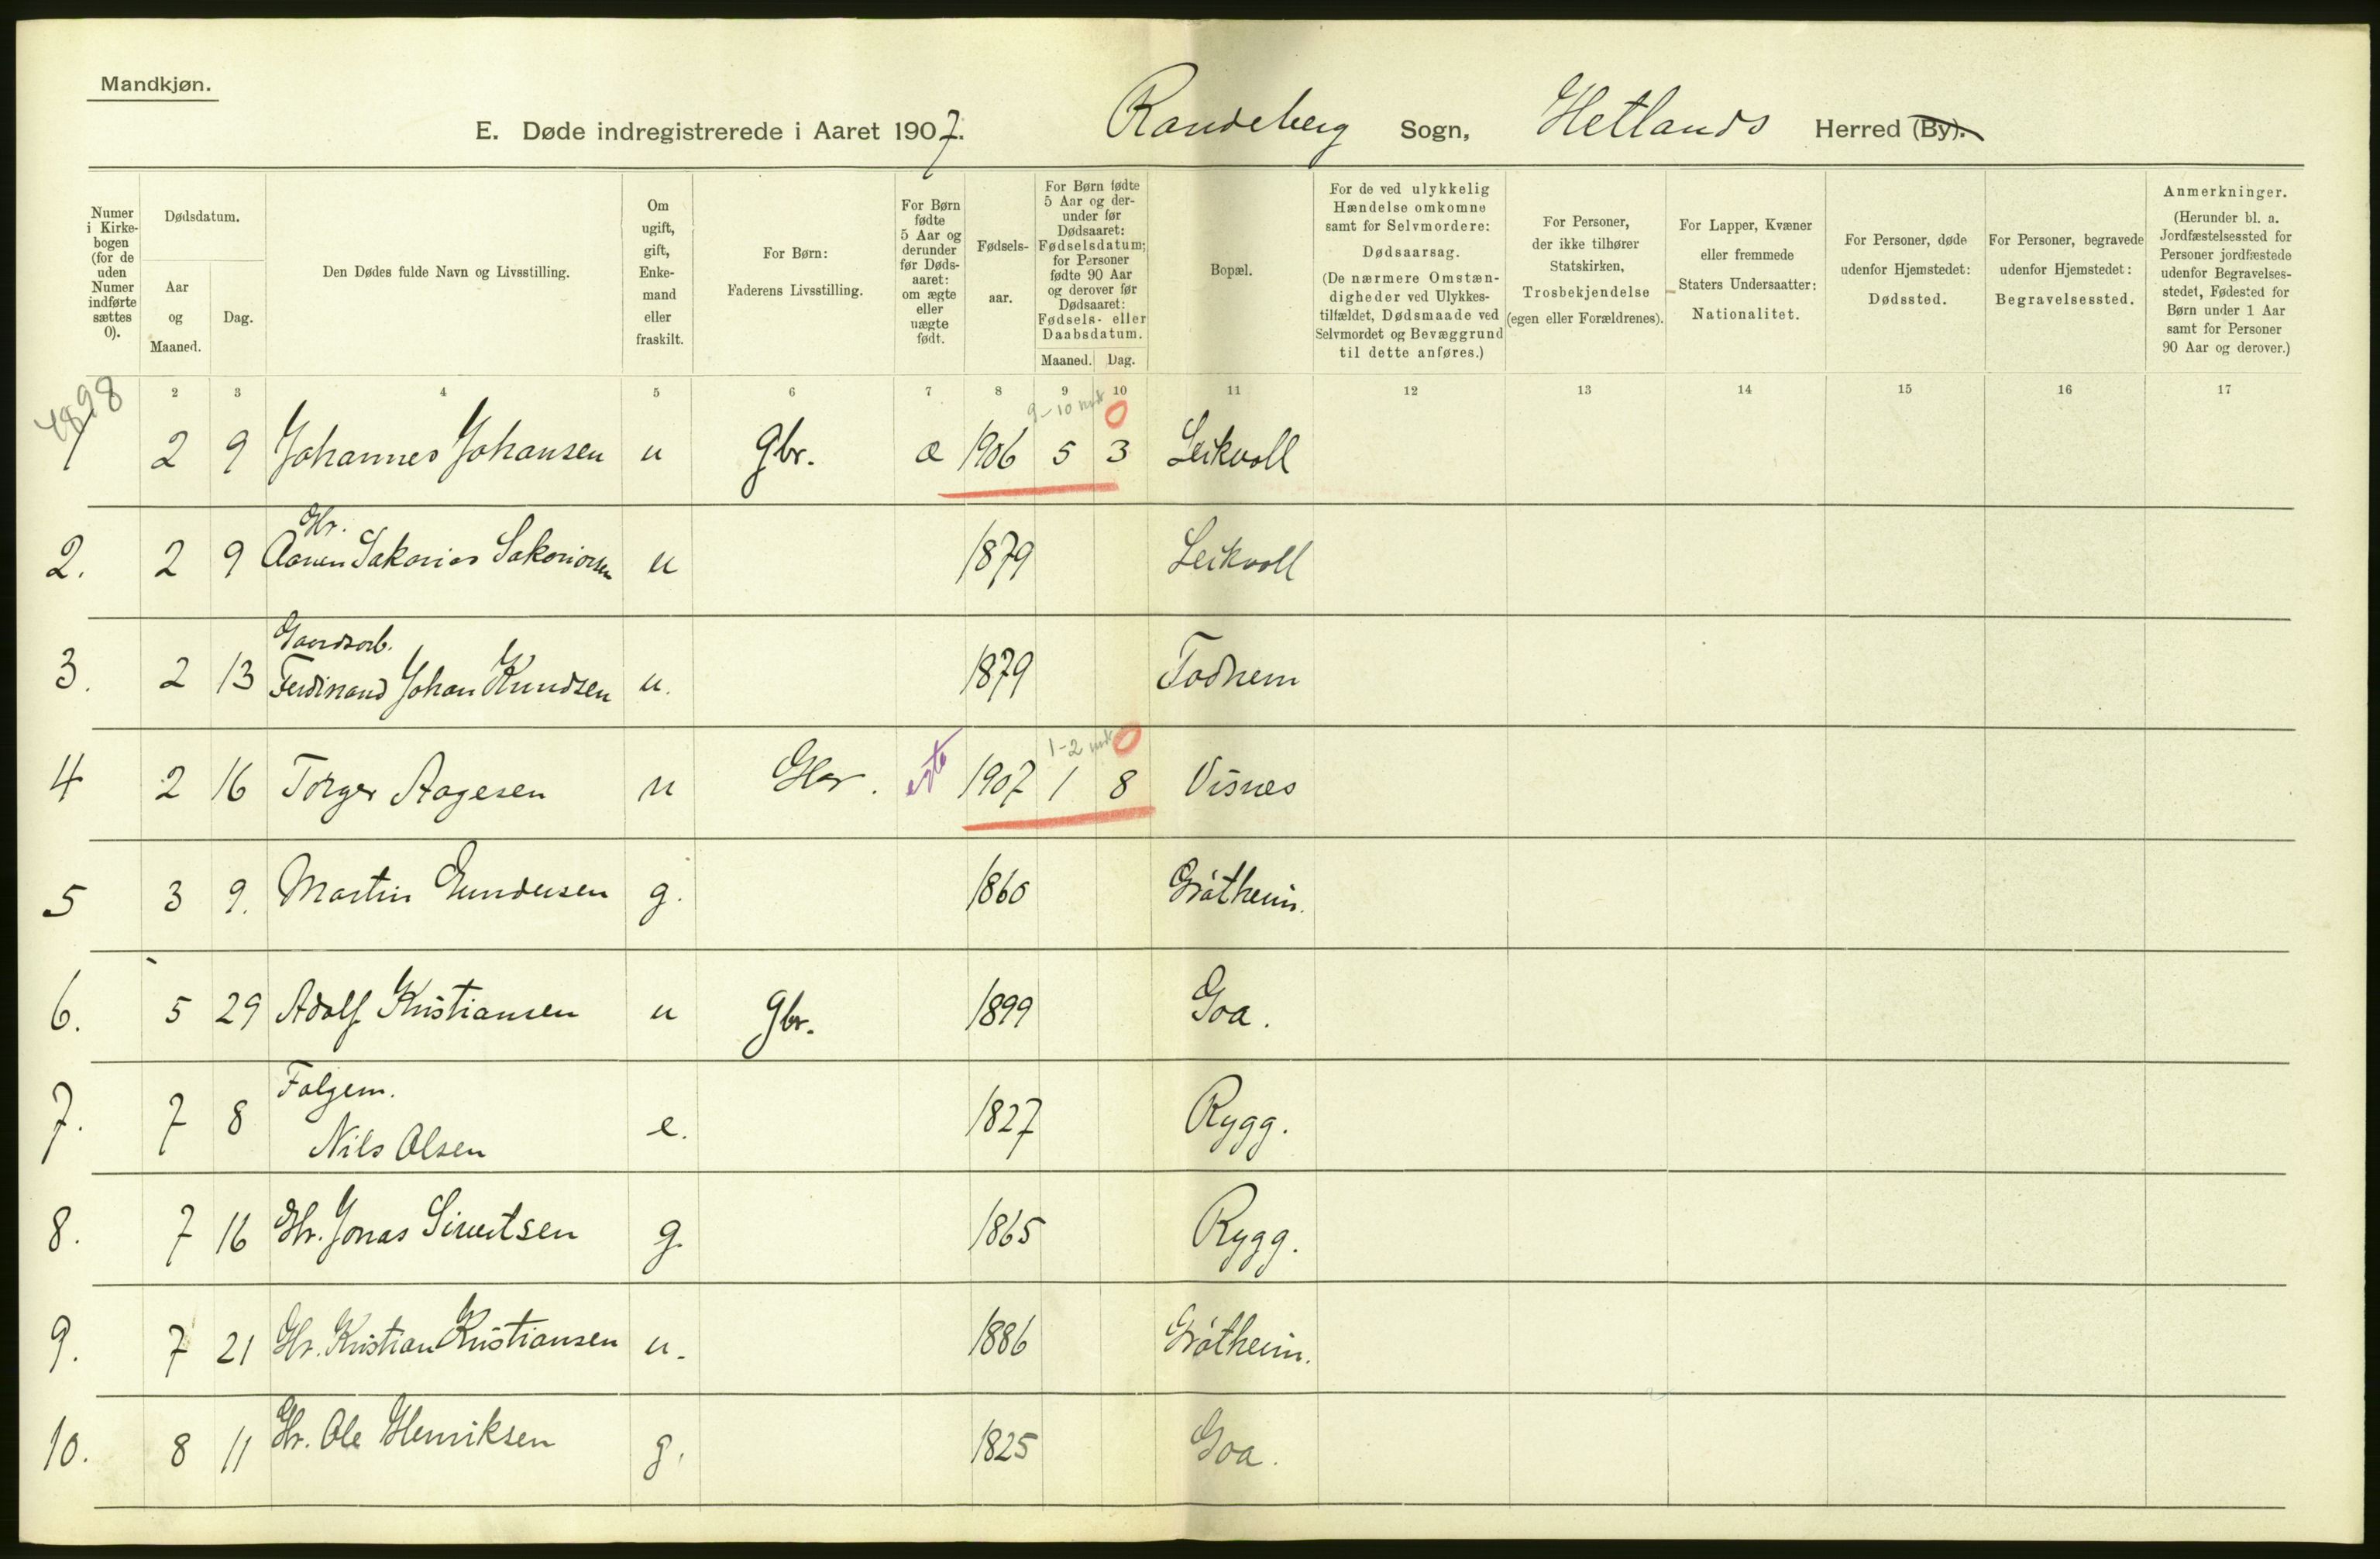 Mandkjøn.
E. Døde indregistrerede i Aaret 1907. Randeberg Sogn, Hetlands Herred (By).
Numer i Kirkebogen (for de uden Numer indførte sættes 0).
Dødsdatum.
Aar og Maaned.
Dag.
Den Dødes fulde Navn og Livsstilling.
Om ugift, gift, Enkemand eller fraskilt.
For Børn: Faderens Livsstilling.
For Børn fødte 5 Aar og derunder før Dødsaaret: om ægte eller uægte født.
Fødselsaar.
For Børn fødte 5 Aar og derunder før Dødsaaret: Fødselsdatum; for Personer fødte 90 Aar og derover før Dødsaaret: Fødsels- eller Daabsdatum.
Maaned. Dag.
Bopæl.
For de ved ulykkelig Hændelse omkomne samt for Selvmordere: Dødsaarsag. (De nærmere Omstændigheder ved Ulykkestilfældet, Dødsmaade ved Selvmordet og Bevæggrund til dette anføres.)
For Personer, der ikke tilhører Statskirken, Trosbekjendelse (egen eller Forældrenes).
For Lapper, Kvæner eller fremmede Staters Undersaatter: Nationalitet.
For Personer, døde udenfor Hjemstedet: Dødssted.
For Personer, begravede udenfor Hjemstedet: Begravelsessted.
Anmerkninger. (Herunder bl. a. Jordfæstelsessted for Personer jordfæstede udenfor Begravelsesstedet, Fødested for Børn under 1 Aar samt for Personer 90 Aar og derover.)
2 3 4 5 6 7 8 9 10 11 12 13 14 15 16 17
4898
9-10 mdr 0
1 2 9 Johannes Johansen u Gbr. æ 1906 5 3 Leikvoll
Gbr.
2. 2 9 Sakarias Sakariasen u 1879 Leikvoll
Gaardsarb.
3. 2 13 Ferdinand Johan Knudsen u. 1879 Todnem
1-2 mdr 0
4 2 16 Torger Aagesen u Gbr. egte 1907 1 8 Visnes
5 3 9. Martin Gundersen g. 1860 Gråtheim.
6. 5 29 Adolf Kristiansen u Gbr. 1899 Goa.
Folgem.
7. 7 8 Nils Olsen e. 1827 Rygg.
8. 7 16 Gbr. Jonas Sivertsen g. 1865 Rygg.
9. 7 21 Gbr. Kristian Kristiansen u. 1886 Gråtheim.
10. 8 11 Gbr. Ole Henriksen g. 1825 Goa.